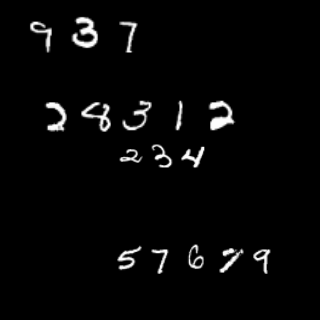 9 3 7
2 8 3 1 2
2 3 4
5 7 6 7 9